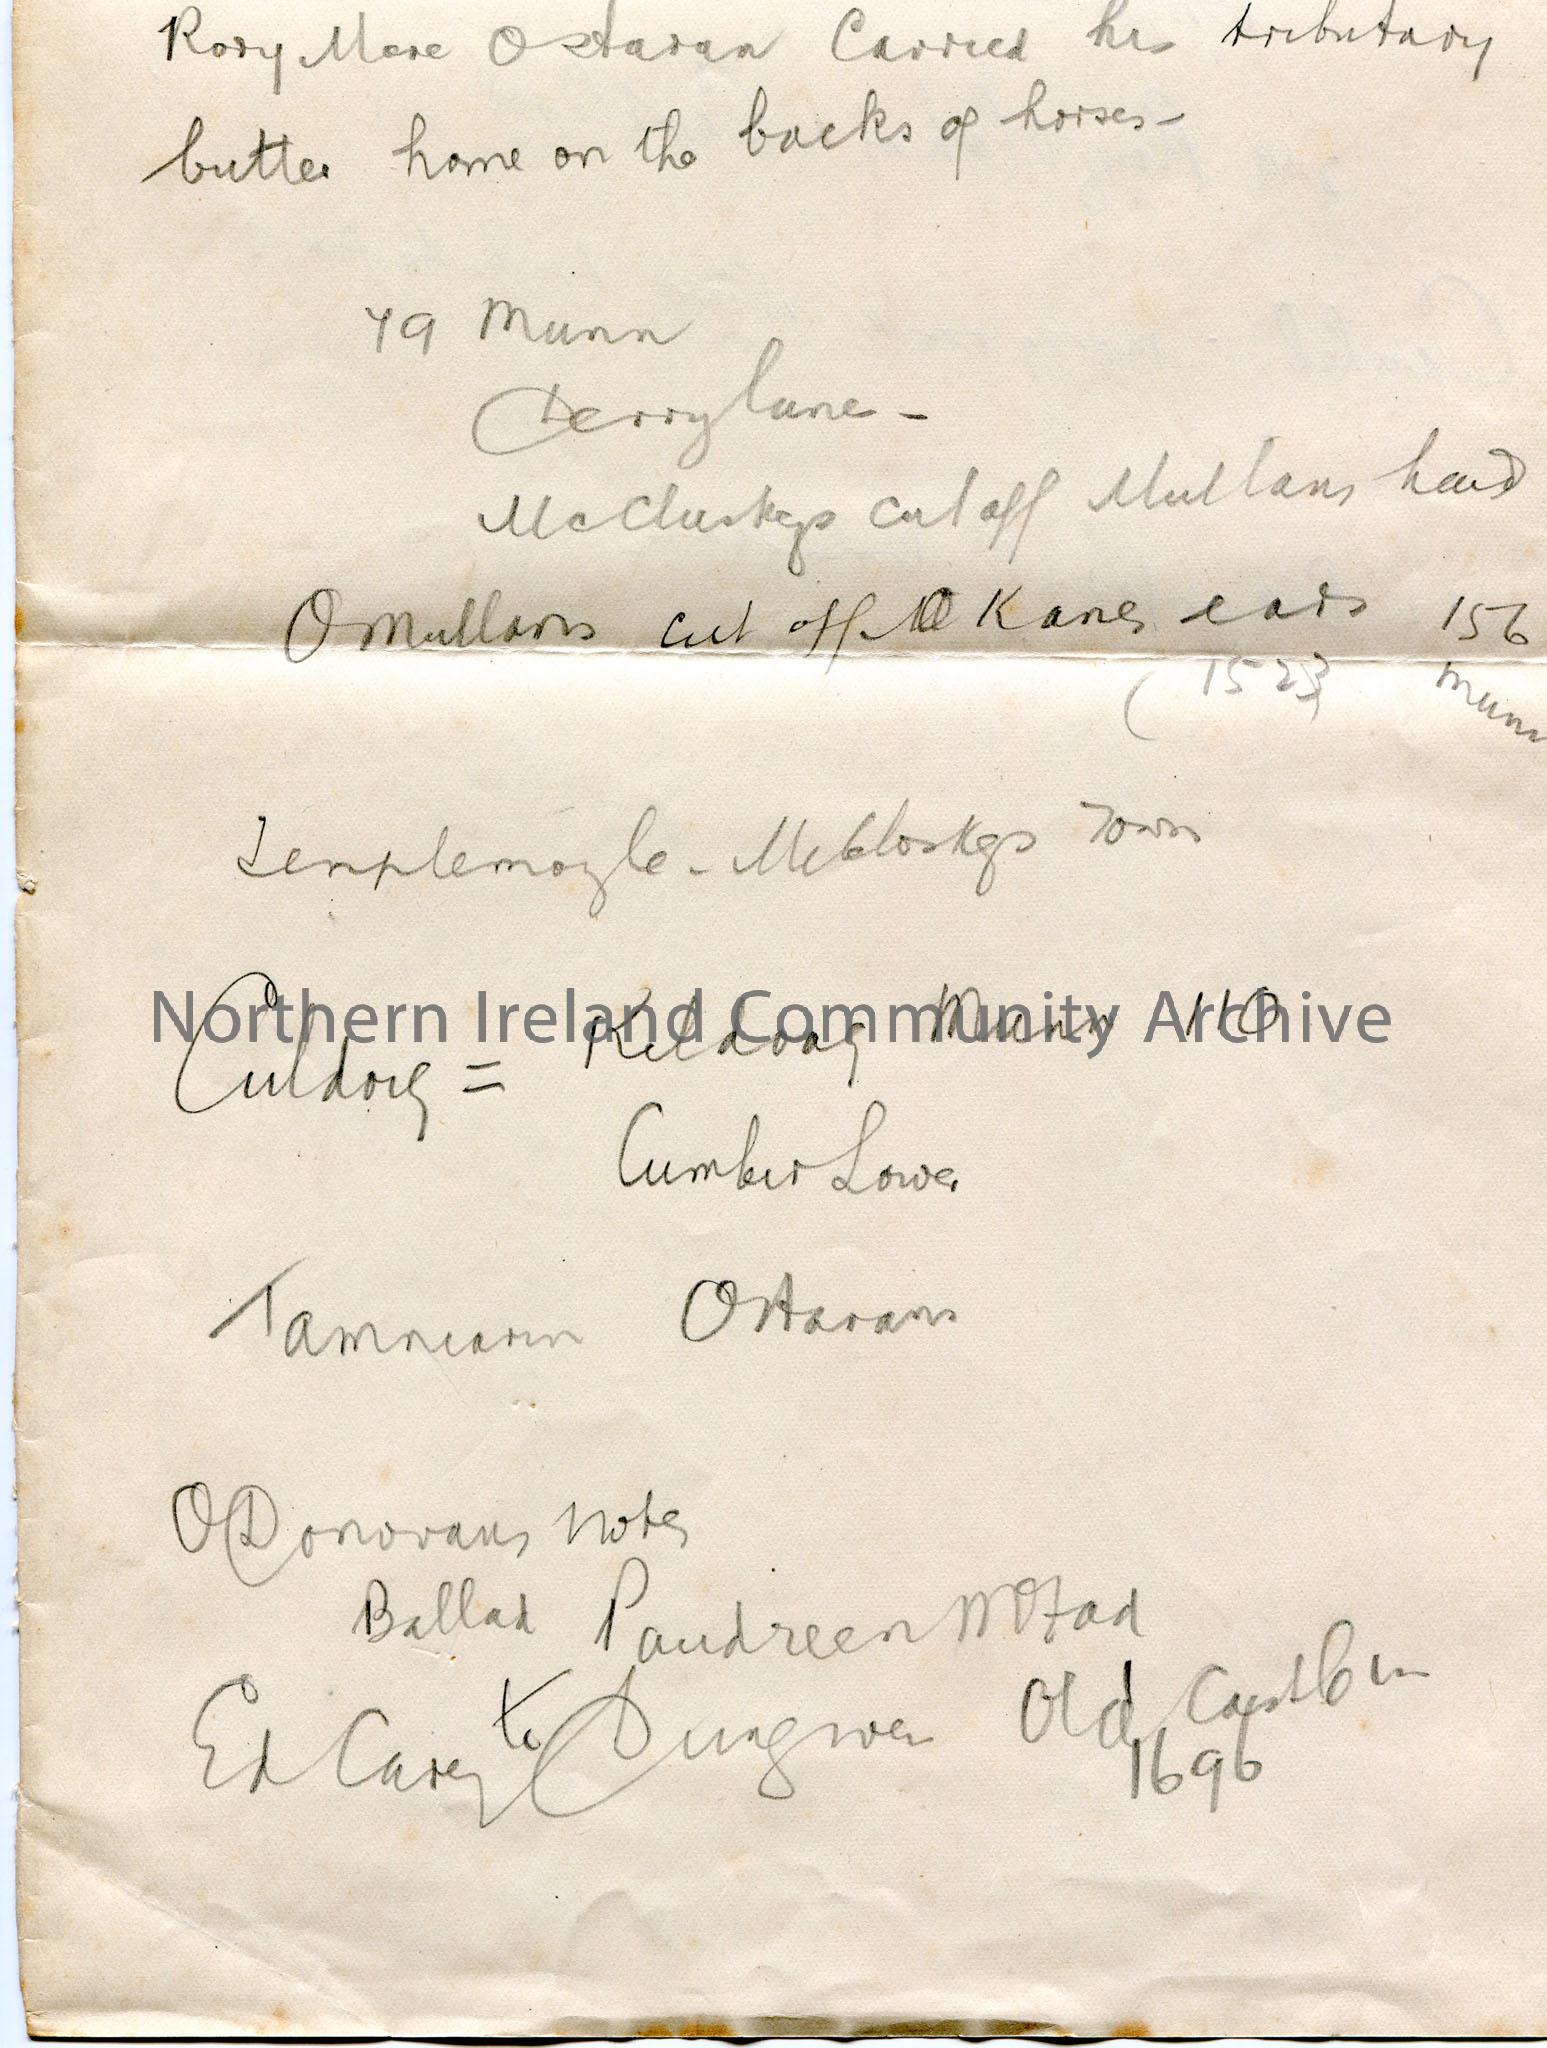 Rory Mere OHaran Carried his tributary
butter home on the backs of horses -
79 Munn
Derrylane -
McCluskeys cut off Mullans head
O Mullans cut off O Kanes ears 156
(1523) Munn
Templemoyle - McCloskeys Town
Northern Ireland Community Archive
Culdoig = Kildoag Munn 110
Cumber Lower
Tamniarin OHarans
O Donovans notes
Ballad Paudreen McFad
Ed Carey to Dungiven Old Castle in
1696